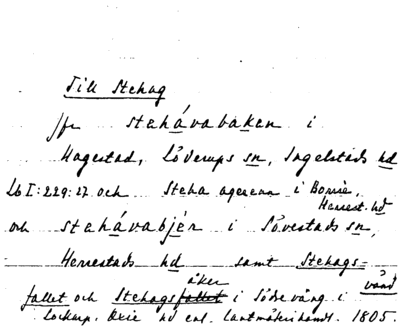 Till Stehag
jfr stehávabaken i
Hagestad, Löderups sn, Ingelstads hd
Lb I:229:27 och Steha agerena i Bonrie, Herrest. hd
och stehávabjér i Sövestads sn,
Herrestads hd samt Stehags=
fallet och Stehagsåker i Södervång i
Lockarp, Oxie hd enl. lantmäterihandl. 1805.